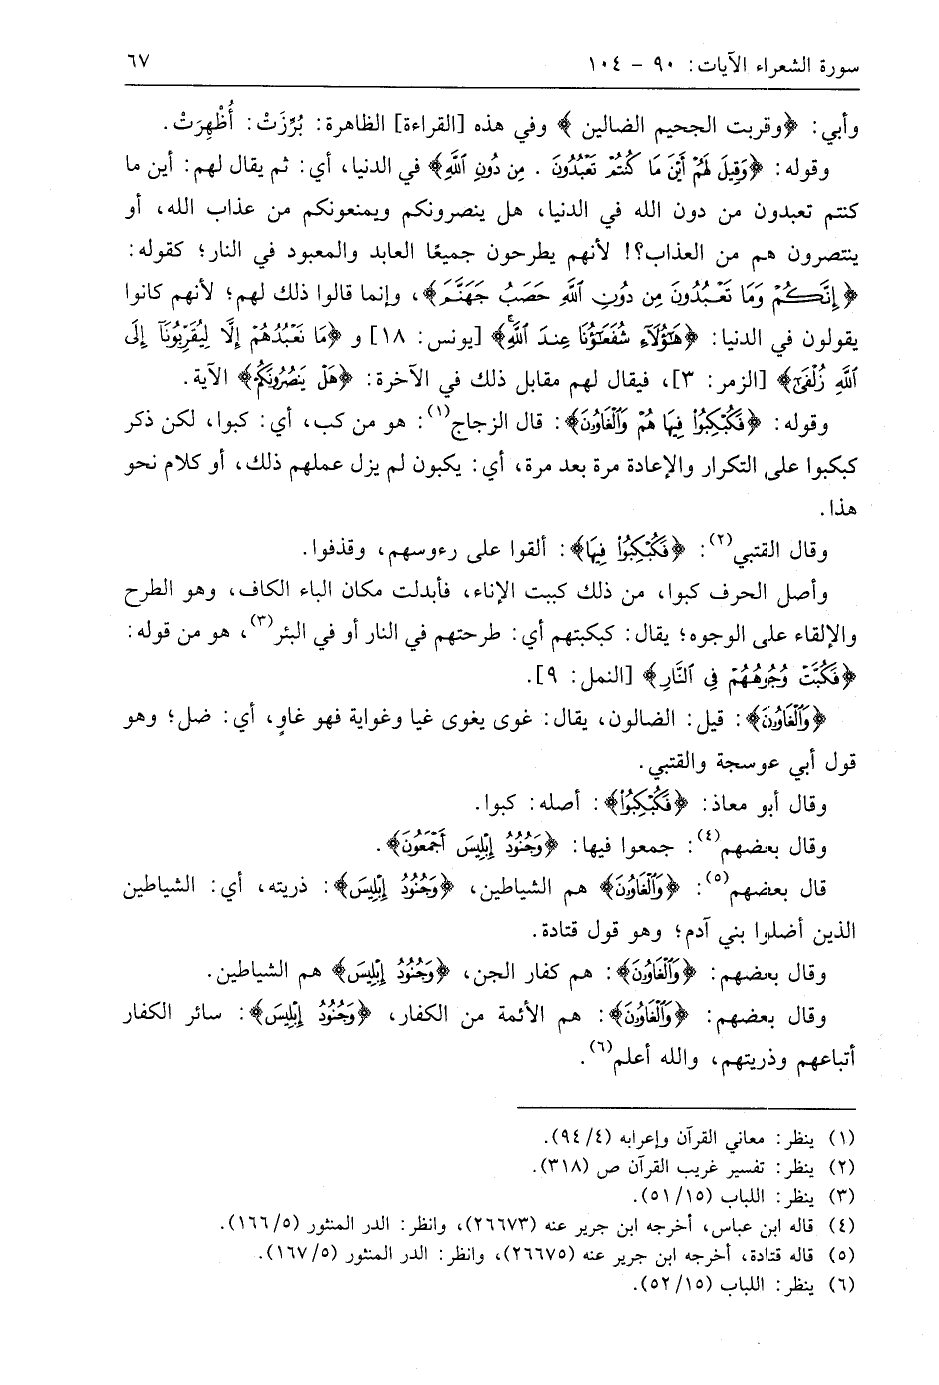 سورة الشعراء الآيات: ٩٠ - ١٠٤ ٦٧
وأبي: ﴿وقربت الجحيم الضالين﴾ وفي هذه [القراءة] الظاهرة: بُرِّزَتْ: أُظْهِرَتْ.
وقوله: ﴿وَقِيلَ لَهُمْ أَيْنَ مَا كُنتُمْ تَعْبُدُونَ . مِن دُونِ ٱللَّهِ﴾ في الدنيا، أي: ثم يقال لهم: أين ما
كنتم تعبدون من دون الله في الدنيا، هل ينصرونكم ويمنعونكم من عذاب الله، أو
ينتصرون هم من العذاب؟! لأنهم يطرحون جميعًا العابد والمعبود في النار؛ كقوله:
﴿إِنَّكُمْ وَمَا تَعْبُدُونَ مِن دُونِ ٱللَّهِ حَصَبُ جَهَنَّمَ﴾، وإنما قالوا ذلك لهم؛ لأنهم كانوا
يقولون في الدنيا: ﴿هَٰٓؤُلَآءِ شُفَعَٰٓؤُنَا عِندَ ٱللَّهِ﴾ [يونس: ١٨] و ﴿مَا نَعْبُدُهُمْ إِلَّا لِيُقَرِّبُونَآ إِلَى
ٱللَّهِ زُلْفَىٰٓ﴾ [الزمر: ٣]، فيقال لهم مقابل ذلك في الآخرة: ﴿هَلْ يَنصُرُونَكُمْ﴾ الآية.
وقوله: ﴿فَكُبْكِبُوا۟ فِيهَا هُمْ وَٱلْغَاوُۥنَ﴾: قال الزجاج(١): هو من كب، أي: كبوا، لكن ذكر
كبكبوا على التكرار والإعادة مرة بعد مرة، أي: يكبون لم يزل عملهم ذلك، أو كلام نحو
هذا.
وقال القتبي(٢): ﴿فَكُبْكِبُوا۟ فِيهَا﴾: ألقوا على رءوسهم، وقذفوا.
وأصل الحرف كبوا، من ذلك كببت الإناء، فأبدلت مكان الباء الكاف، وهو الطرح
والإلقاء على الوجوه؛ يقال: كبكبتهم أي: طرحتهم في النار أو في البئر(٣)، هو من قوله:
﴿فَكُبَّتْ وُجُوهُهُمْ فِى ٱلنَّارِ﴾ [النمل: ٩].
﴿وَٱلْغَاوُۥنَ﴾: قيل: الضالون، يقال: غوى يغوى غيا وغواية فهو غاوٍ، أي: ضل؛ وهو
قول أبي عوسجة والقتبي.
وقال أبو معاذ: ﴿فَكُبْكِبُوا۟﴾: أصله: كبوا.
وقال بعضهم(٤): جمعوا فيها: ﴿وَجُنُودُ إِبْلِيسَ أَجْمَعُونَ﴾.
قال بعضهم(٥): ﴿وَٱلْغَاوُۥنَ﴾ هم الشياطين، ﴿وَجُنُودُ إِبْلِيسَ﴾: ذريته، أي: الشياطين
الذين أضلوا بني آدم؛ وهو قول قتادة.
وقال بعضهم: ﴿وَٱلْغَاوُۥنَ﴾: هم كفار الجن، ﴿وَجُنُودُ إِبْلِيسَ﴾ هم الشياطين.
وقال بعضهم: ﴿وَٱلْغَاوُۥنَ﴾: هم الأئمة من الكفار، ﴿وَجُنُودُ إِبْلِيسَ﴾: سائر الكفار
أتباعهم وذريتهم، والله أعلم(٦).
(١) ينظر: معاني القرآن وإعرابه (٩٤/٤).
(٢) ينظر: تفسير غريب القرآن ص (٣١٨).
(٣) ينظر: اللباب (٥١/١٥).
(٤) قاله ابن عباس، أخرجه ابن جرير عنه (٢٦٦٧٣)، وانظر: الدر المنثور (١٦٦/٥).
(٥) قاله قتادة، أخرجه ابن جرير عنه (٢٦٦٧٥)، وانظر: الدر المنثور (١٦٧/٥).
(٦) ينظر: اللباب (٥٢/١٥).